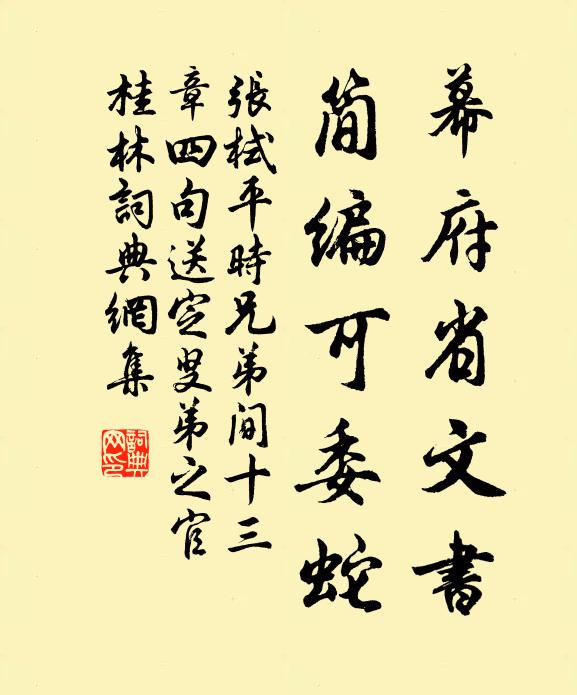 幕府省文書
简编可委蛇
張栻平時兄弟间十三
章四句送定叟弟之官
桂林詞典網集
詞典
网印